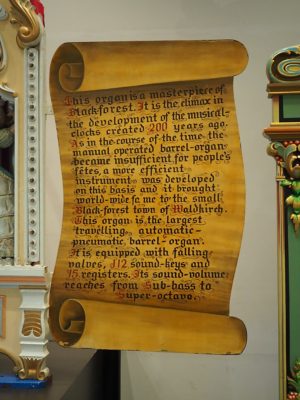 This organ is a masterpiece of
Black forest. It is the climax in
the development of the musical-
clocks created 200 years ago.
As in the course of the time the
manual operated barrel-organ
became insufficient for people's
fêtes, a more efficient
instrument was developed
on this basis and it brought
world-wide fame to the small
Black-forest town of Waldkirch.
This organ is the largest
travelling automatic-
pneumatic, barrel-organ.
It is equipped with falling
valves, 112 sound-keys and
15 registers. Its sound-volume
reaches from Sub-bass to
Super-octavo.